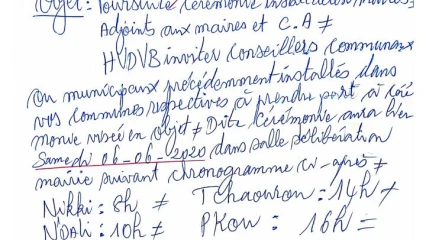 Objet : Poursuite cérémonie installation maires,
Adjoints aux maires et C.A ≠
HVDVB inviter Conseillers communaux
ou municipaux précédemment installés dans
vos communes respectives à prendre part à céré
monie visée en objet ≠ Dite Cérémonie aura lieu
Samedi 06-06-2020 dans salle délibération
mairie suivant chronogramme ci-après ≠
Nikki : 8h ≠ Tchaourou : 14h ≠
N'Dali : 10h ≠ Pkou : 16h =